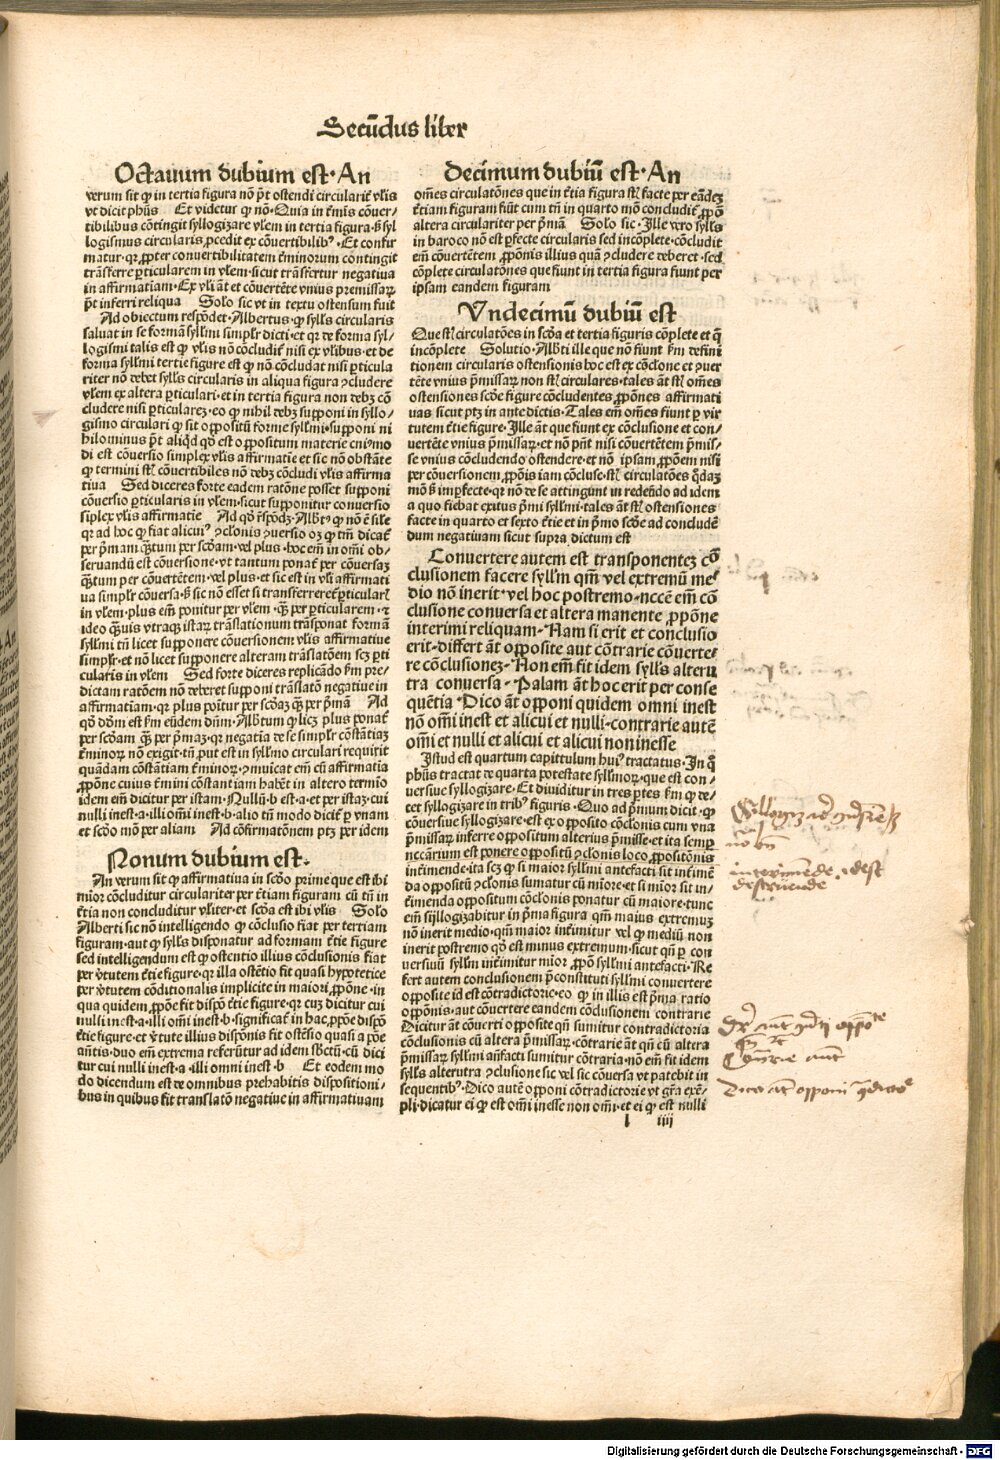 Secūdus liber
Octauum dubium est·An
verum sit ꝙ in tertia figura nō pōt ostendi circularit̄ vl̄is
vt dicit ph̄us Et videtur ꝙ nō·Quia in t̄mis cōuer/
tibilibus cōtingit syllogizare vl̄em in tertia figura·
logismus circularis ꝓcedit ex cōuertibilibꝰ·Et confir
matur·qꝛ ꝓpter conuertibilitatem t̄minorum contingit
trāsferre ꝑticularem in vl̄em·sicut trāsfertur negatiua
in affirmatiam·Ex vl̄i āt et cōuertēte vnius premissaꝝ
pōt inferri reliqua Solo sic vt in textu ostensum fuit
Ad obiectum respōdet·Albertus·ꝙ syll̄s circularis
saluat in se formā syllīmi simpl̄r dicti·et qꝛ de forma syl/
logismi talis est ꝙ vl̄is nō cōcludit̄ nisi ex vl̄ibus·et de
forma syllīmi tertie figure est ꝙ nō cōcludat nisi ꝑticula
riter nō debet syll̄s circularis in aliqua figura ↄcludere
vl̄em ex altera ꝑticulari·et in tertia figura non debꝫ cō
cludere nisi ꝑticularē·eo ꝙ nihil debꝫ supponi in syllo/
gismo circulari ꝙ sit oppositū forme syllīmi·supponi ni
hilominus pōt aliqd̄ qd̄ est oppositum materie
di est cōuersio simplex vl̄is affirmatie et sic nō obstāte
ꝙ termini sūt cōuertibiles nō debꝫ cōcludi vl̄is affirma
tiua Sed diceres forte eadem ratōne posset supponi
cōuersio ꝑticularis in vl̄em·sicut supponitur conuersio
siplex vl̄is affirmatie Ad qd̄ r̄spōdꝫ·Albtꝰ ꝙ nō ē sil̄e
qꝛ ad hoc ꝙ fiat alicuiꝰ ↄclōnis ↄuersio oꝫ ꝙ tm̄ dicat̄
per pʾmam qꝫtum per scd̄am·vel plus·hoc em̄ in om̄i ob/
seruandū est cōuersione·vt tantum ponat̄ per cōuersaꝫ
qꝫtum per cōuertētem·vel plus·et sic est in vl̄i affirmati
ua simpl̄r cōuersa·
in vl̄em·plus em̄ ponitur per vl̄em·qꝫ per ꝑticularem·⁊
ideo qꝫuis vtraqꝫ istaꝝ trāslationum trāsponat formā
syllīmi tn̄ licet supponere cōuersionem vl̄is affirmatiue
simpl̄r·et nō licet supponere alteram trāslatōem scꝫ ꝑti
cularis in vl̄em Sed forte diceres replicādo fm̄ pre/
dictam ratōem nō deberet supponi trāslatō negatiue in
affirmatiam·qꝛ plus poītur per scd̄aꝫ qꝫ per pʾmā Ad
qd̄ dd̄m est fm̄ eūdem dn̄m·Albtum ꝙ licꝫ plus ponat̄
per scd̄am qꝫ per pʾmaꝫ·qꝛ negatia de se simpl̄r cōstātiaꝫ
t̄minoꝝ nō exigit·tn̄ put est in syllīmo circulari requirit
quādam cōstātiam t̄minoꝝ·ↄmuicat em̄ cū affirmatia
ꝓpōne cuius t̄mini cōstantiam habēt in altero termīo
idem em̄ dicitur per istam·Nullū·b est·a·et per istaꝫ·cui
nulli inest·a·illi om̄i inest·b·alio tn̄ modo dicit̄ ꝑ vnam
et scd̄o mō per aliam Ad cōfirmatōnem ptꝫ per idem
Nonum dubium est·
An verum sit ꝙ affirmatiua in scd̄o prime que est ibi
mīor cōcluditur circulariter per t̄tiam figuram cū tn̄ in
t̄tia non concluditur vl̄iter·et scd̄a est ibi vl̄is Solo
Alberti sic nō intelligendo ꝙ cōclusio fiat per tertiam
figuram·aut ꝙ syll̄s disponatur ad formam t̄tie figure
sed intelligendum est ꝙ ostentio illius cōclusionis fiat
per v̄tutem t̄tie figure·qꝛ illa ostētio fit quasi hypotetice
per v̄tutem cōditionalis implicite in maiori ꝓpōne·in
qua quidem ꝓpōe fit dispō t̄tie figure·qꝛ cuꝫ dicitur cui
nulli inest·a·illi om̄i inest·b·significat̄ in hac ꝓpōe dispō
t̄tie figure·et v̄tute illius dispōnis fit ostēsio quasi a ꝓpōe
antis·duo em̄ extrema referūtur ad idem sbctū·cū dici
tur cui nulli inest·a·illi omni inest·b Et eodem mo
do dicendum est de omnibus prehabitis dispositioni/
bus in quibus fit translatō negatiue in affirmatiuam
Decimum dubiū est·An
om̄es circulatōnes que in t̄tia figura sūt facte per eādeꝫ
t̄tiam figuram fiūt cum tn̄ in quarto mō concludit̄ ꝓpō
altera circulariter per pʾmā Solo sic·Ille vero syll̄s
in baroco nō est ꝑfecte circularis sed incōplete·cōcludit
em̄ cōuertētem ꝓpōnis illius quā ↄcludere deberet·sed
cōplete circulatōnes que fiunt in tertia figura fiunt per
ipsam eandem figuram
Vndecimū dubiū est
Que sūt circulatōes in scd̄a et tertia figuris cōplete et q̄
incōplete Solutio·Albti ille que nō fiunt fm̄ definī
tionem circularis ostensionis hoc est ex cōclone et ↄuer
tēte vnius pʾmissaꝝ non sūt circulares·tales āt sūt om̄es
ostensiones scd̄e figure cōcludentes ꝓpōnes affirmati
uas sicut ptꝫ in ante dictis·Tales em̄ om̄es fiunt ꝑ vir
tutem t̄tie figure·Ille āt que fiunt ex cōclusione et con/
uertēte vnius pʾmissaꝝ·et nō pn̄t nisi cōuertētem pʾmis/
se vnius concludendo ostendere·et nō ipsam ꝓpōem nisi
per cōuersionem ꝓpōis iam cōcluse·sūt circulatōes q̄daꝫ
mō sʒ imꝑfecte·qꝛ nō de se attingunt in redeūdo ad idem
a quo fiebat exitus pʾmi syllīmi·tales āt sūt ostensiones
facte in quarto et sexto t̄tie et in pʾmo scd̄e ad concludē
dum negatiuam sicut supra dictum est
Conuertere autem est transponenteꝫ cō
clusionem facere syllīm qm̄ vel extremū me/
dio nō inerit·vel hoc postremo·nccē em̄ cō
clusione conuersa et altera manente ꝓpōne
interimi reliquam·Nam si erit et conclusio
erit·differt āt opposite aut cōtrarie cōuerte/
re cōclusioneꝫ·Non em̄ fit idem syll̄s alteru
tra conuersa·Palam āt hoc erit per conse
quētia·Dico āt opponi quidem omni inest
nō om̄i inest et alicui et nulli·contrarie autē
om̄i et nulli et alicui et alicui non inesse
Istud est quartum capittulum huiꝰ tractatus·In q̄
ph̄us tractat de quarta potestate syllīmoꝝ·que est con/
uersiue syllogizare·Et diuiditur in tres ꝑtes fm̄ ꝙ do/
cet syllogizare in tribꝰ figuris·Quo ad pʾmum dicit·ꝙ
cōuersiue syllogizare·est ex opposito cōclonis cum vna
pʾmissaꝝ inferre oppositum alterius pʾmisse·et ita semꝑ
nccārium est ponere oppositū ↄclonis loco ꝓpositōnis
int̄imende·ita scꝫ ꝙ si maior syllīmi antefacti sit int̄imē
da oppositū ↄclonis sumatur cū mīore·et si mīor sit in/
t̄imenda oppositum cōclonis ponatur cū maiore·tunc
em̄ sijllogizabitur in pʾma figura qm̄ maius extremuꝫ
nō inerit medio·qm̄ maior int̄imitur vel ꝙ mediū non
inerit postremo qd̄ est minus extremum·sicut qn̄ ꝑ con
uersiuū syllīm int̄imitur mīor ꝓpō syllīmi antefacti·Re
fert autem conclusionem pʾconstituti syllīmi conuertere
opposite id est cōtradictorie·eo ꝙ in illis est pʾma ratio
oppōnis·aut cōuertere eandem cōclusionem contrarie
Dicitur āt cōuerti opposite qn̄ sumitur contradictoria
cōclusionis cū altera pʾmissaꝝ·cōtrarie āt qn̄ cū altera
pʾmissaꝝ syllīmi anfacti sumitur cōtraria·nō em̄ fit idem
syll̄s alterutra ↄclusione sic vel sic cōuersa vt patebit in
sequentibꝰ·Dico autē opponi cōtradictorie vt gra exē/
pli·dicatur ei ꝙ est om̄i inesse non om̄i·et ei ꝙ est nulli
l iiii
interimēde·i·dest
destruende
Digitalisierung gefördert durch die Deutsche Forschungsgemeinschaft - DFG